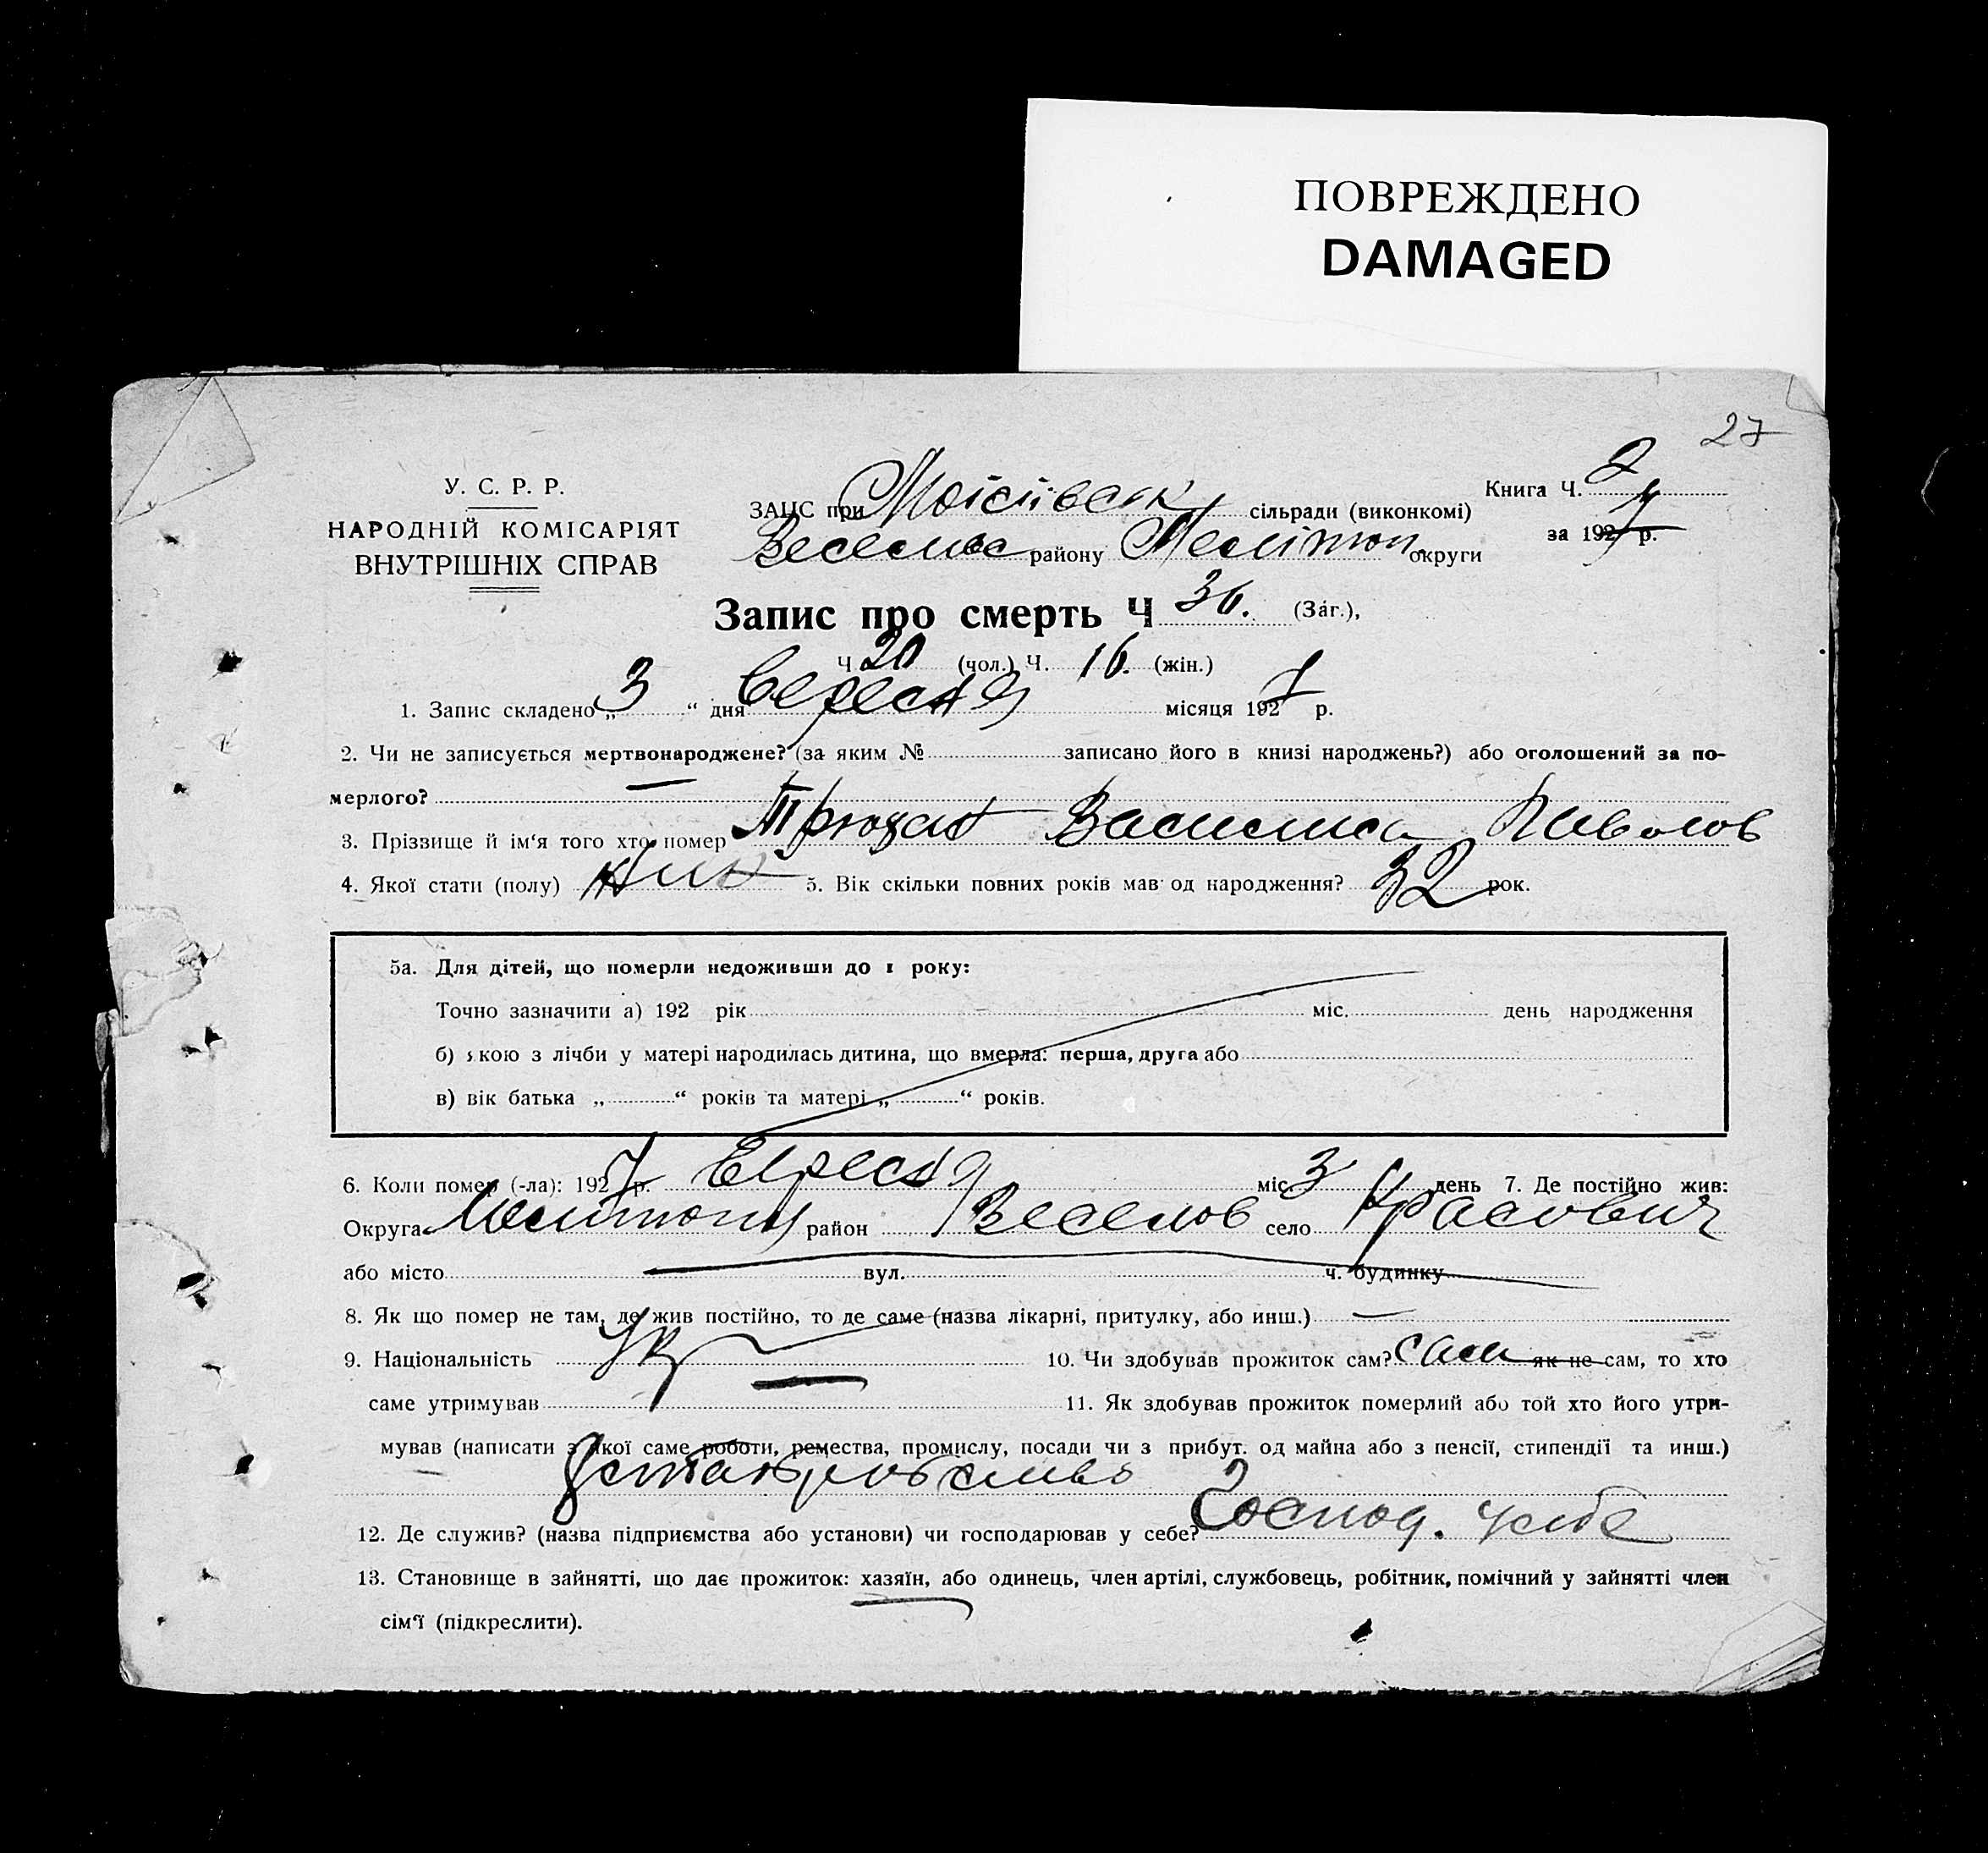 ПОВРЕЖДЕНО
DAMAGED
27
У. С. Р. Р.
НАРОДНІЙ КОМІСАРІЯТ
ВНУТРІШНІХ СПРАВ
ЗАЦС при сільраді (виконкомі)
району Мелітоп. округи
Книга Ч. 2
за 1927 р.
Запис про смерть Ч 36. (Заг.),
Ч 20 (чол.) Ч. 16. (жін.)
1. Запис складено „ 3 “ дня вересня місяця 1927 р.
2. Чи не записується мертвонароджене? (за яким № записано його в книзі народжень?) або оголошений за по-
мерлого? —
3. Прізвище й ім‘я того хто помер Василиса
4. Якої стати (полу) 5. Вік скільки повних років мав од народження? 32 рок.
5а. Для дітей, що померли недоживши до 1 року:
Точно зазначити а) 192 рік міс. день народження
б) якою з лічби у матері народилась дитина, що вмерла: перша, друга або
в) вік батька „ “ років та матері „ “ років.
6. Коли помер (-ла): 1927 р. вересня міс. 3 день 7. Де постійно жив:
Округа район Веселов село
або місто вул. ч. будинку
8. Як що помер не там, де жив постійно, то де саме (назва лікарні, притулку, або инш.) —
9. Національність Укр 10. Чи здобував прожиток сам? сам як не сам, то хто
саме утримував 11. Як здобував прожиток померлий або той хто його утри-
мував (написати з якої саме роботи, ремества, промислу, посади чи з прибут. од майна або з пенсії, стипендії та инш.)
12. Де служив? (назва підприємства або установи) чи господарював у себе? Господ. у себе
13. Становище в зайнятті, що дає прожиток: хазяїн, або одинець, член артілі, службовець, робітник, помічний у зайнятті член
сім‘ї (підкреслити).